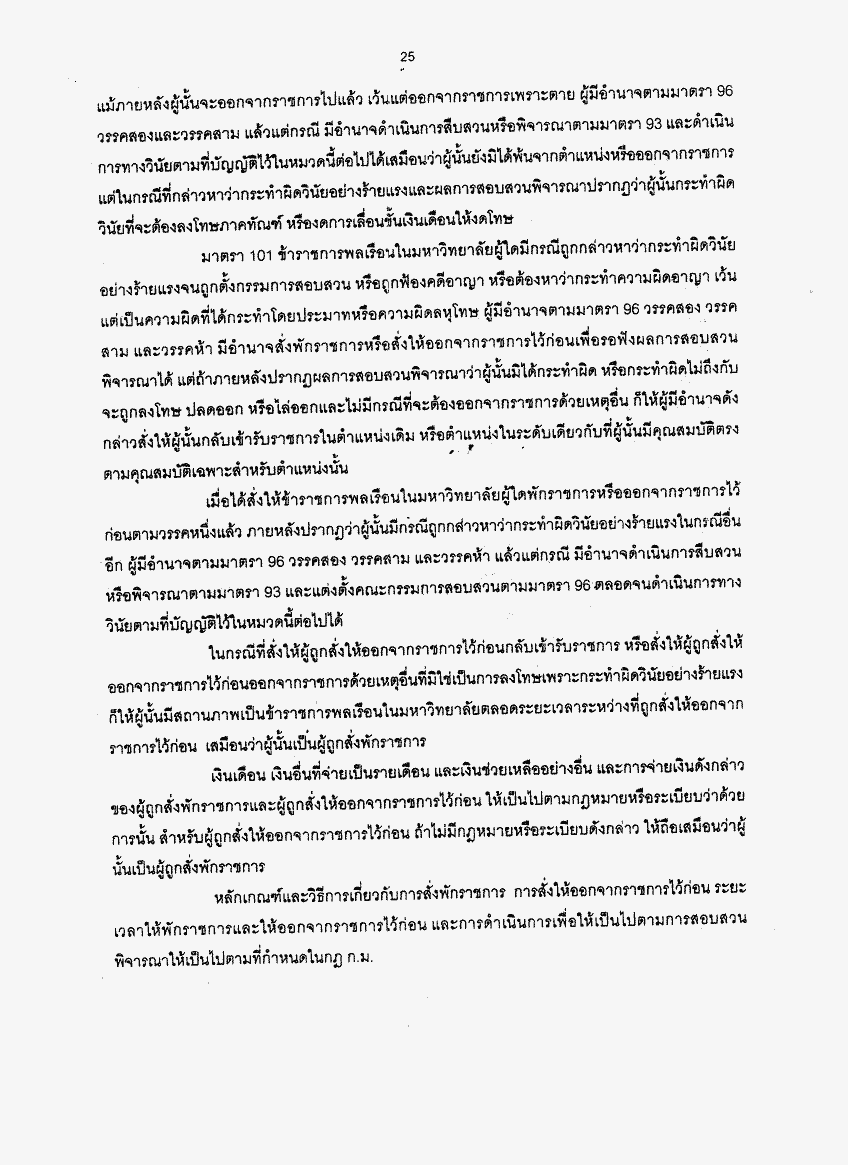 25
แม้ภายหลังผู้นั้นจะออกจากราชการไปแล้ว เว้นแต่ออกจากราชการเพราะตาย ผู้มีอำนาจตามมาตรา 96
วรรคสองและวรรคสาม แล้วแต่กรณี มีอำนาจดำเนินการสืบสวนหรือพิจารณาตามมาตรา 93 และดำเนิน
การทางวินัยตามที่บัญญัติไว้ในหมวดนี้ต่อไปได้เสมือนว่าผู้นั้นยังมิได้พ้นจากตำแหน่งหรือออกจากราชการ
แต่ในกรณีที่กล่าวหาว่ากระทำผิดวินัยอย่างร้ายแรงและผลการสอบสวนพิจารณาปรากฏว่าผู้นั้นกระทำผิด
วินัยที่จะต้องลงโทษภาคทัณฑ์ หรืองดการเลื่อนขั้นเงินเดือนให้งดโทษ
มาตรา 101 ข้าราชการพลเรือนในมหาวิทยาลัยผู้ใดมีกรณีถูกกล่าวหาว่ากระทำผิดวินัย
อย่างร้ายแรงจนถูกตั้งกรรมการสอบสวน หรือถูกฟ้องคดีอาญา หรือต้องหาว่ากระทำความผิดอาญา เว้น
แต่เป็นความผิดที่ได้กระทำโดยประมาทหรือความผิดลหุโทษ ผู้มีอำนาจตามมาตรา 96 วรรคสอง วรรค
สาม และวรรคห้า มีอำนาจสั่งพักราชการหรือสั่งให้ออกจากราชการไว้ก่อนเพื่อรอฟังผลการสอบสวน
พิจารณาได้ แต่ถ้าภายหลังปรากฏผลการสอบสวนพิจารณาว่าผู้นั้นมิได้กระทำผิด หรือกระทำผิดไม่ถึงกับ
จะถูกลงโทษ ปลดออก หรือไล่ออกและไม่มีกรณีที่จะต้องออกจากราชการด้วยเหตุอื่น ก็ให้ผู้มีอำนาจดัง
กล่าวสั่งให้ผู้นั้นกลับเข้ารับราชการในตำแหน่งเดิม หรือตำแหน่งในระดับเดียวกับที่ผู้นั้นมีคุณสมบัติตรง
ตามคุณสมบัติเฉพาะสำหรับตำแหน่งนั้น
เมื่อได้สั่งให้ข้าราชการพลเรือนในมหาวิทยาลัยผู้ใดพักราชการหรือออกจากราชการไว้
ก่อนตามวรรคหนึ่งแล้ว ภายหลังปรากฏว่าผู้นั้นมีกรณีถูกกล่าวหาว่ากระทำผิดวินัยอย่างร้ายแรงในกรณีอื่น
อีก ผู้มีอำนาจตามมาตรา 96 วรรคสอง วรรคสาม และวรรคห้า แล้วแต่กรณี มีอำนาจดำเนินการสืบสวน
หรือพิจารณาตามมาตรา 93 และแต่งตั้งคณะกรรมการสอบสวนตามมาตรา 96 ตลอดจนดำเนินการทาง
วินัยตามที่บัญญัติไว้ในหมวดนี้ต่อไปได้
ในกรณีที่สั่งให้ผู้ถูกสั่งให้ออกจากราชการไว้ก่อนกลับเข้ารับราชการ หรือสั่งให้ผู้ถูกสั่งให้
ออกจากราชการไว้ก่อนออกจากราชการด้วยเหตุอื่นที่มิใช่เป็นการลงโทษเพราะกระทำผิดวินัยอย่างร้ายแรง
ก็ให้ผู้นั้นมีสถานภาพเป็นข้าราชการพลเรือนในมหาวิทยาลัยตลอดระยะเวลาระหว่างที่ถูกสั่งให้ออกจาก
ราชการไว้ก่อน เสมือนว่าผู้นั้นเป็นผู้ถูกสั่งพักราชการ
เงินเดือน เงินอื่นที่จ่ายเป็นรายเดือน และเงินช่วยเหลืออย่างอื่น และการจ่ายเงินดังกล่าว
ของผู้ถูกสั่งพักราชการและผู้ถูกสั่งให้ออกจากราชการไว้ก่อน ให้เป็นไปตามกฎหมายหรือระเบียบว่าด้วย
การนั้น สำหรับผู้ถูกสั่งให้ออกจากราชการไว้ก่อน ถ้าไม่มีกฎหมายหรือระเบียบดังกล่าว ให้ถือเสมือนว่าผู้
นั้นเป็นผู้ถูกสั่งพักราชการ
หลักเกณฑ์และวิธีการเกี่ยวกับการสั่งพักราชการ การสั่งให้ออกจากราชการไว้ก่อน ระยะ
เวลาให้พักราชการและให้ออกจากราชการไว้ก่อน และการดำเนินการเพื่อให้เป็นไปตามการสอบสวน
พิจารณาให้เป็นไปตามที่กำหนดในกฎ ก.ม.